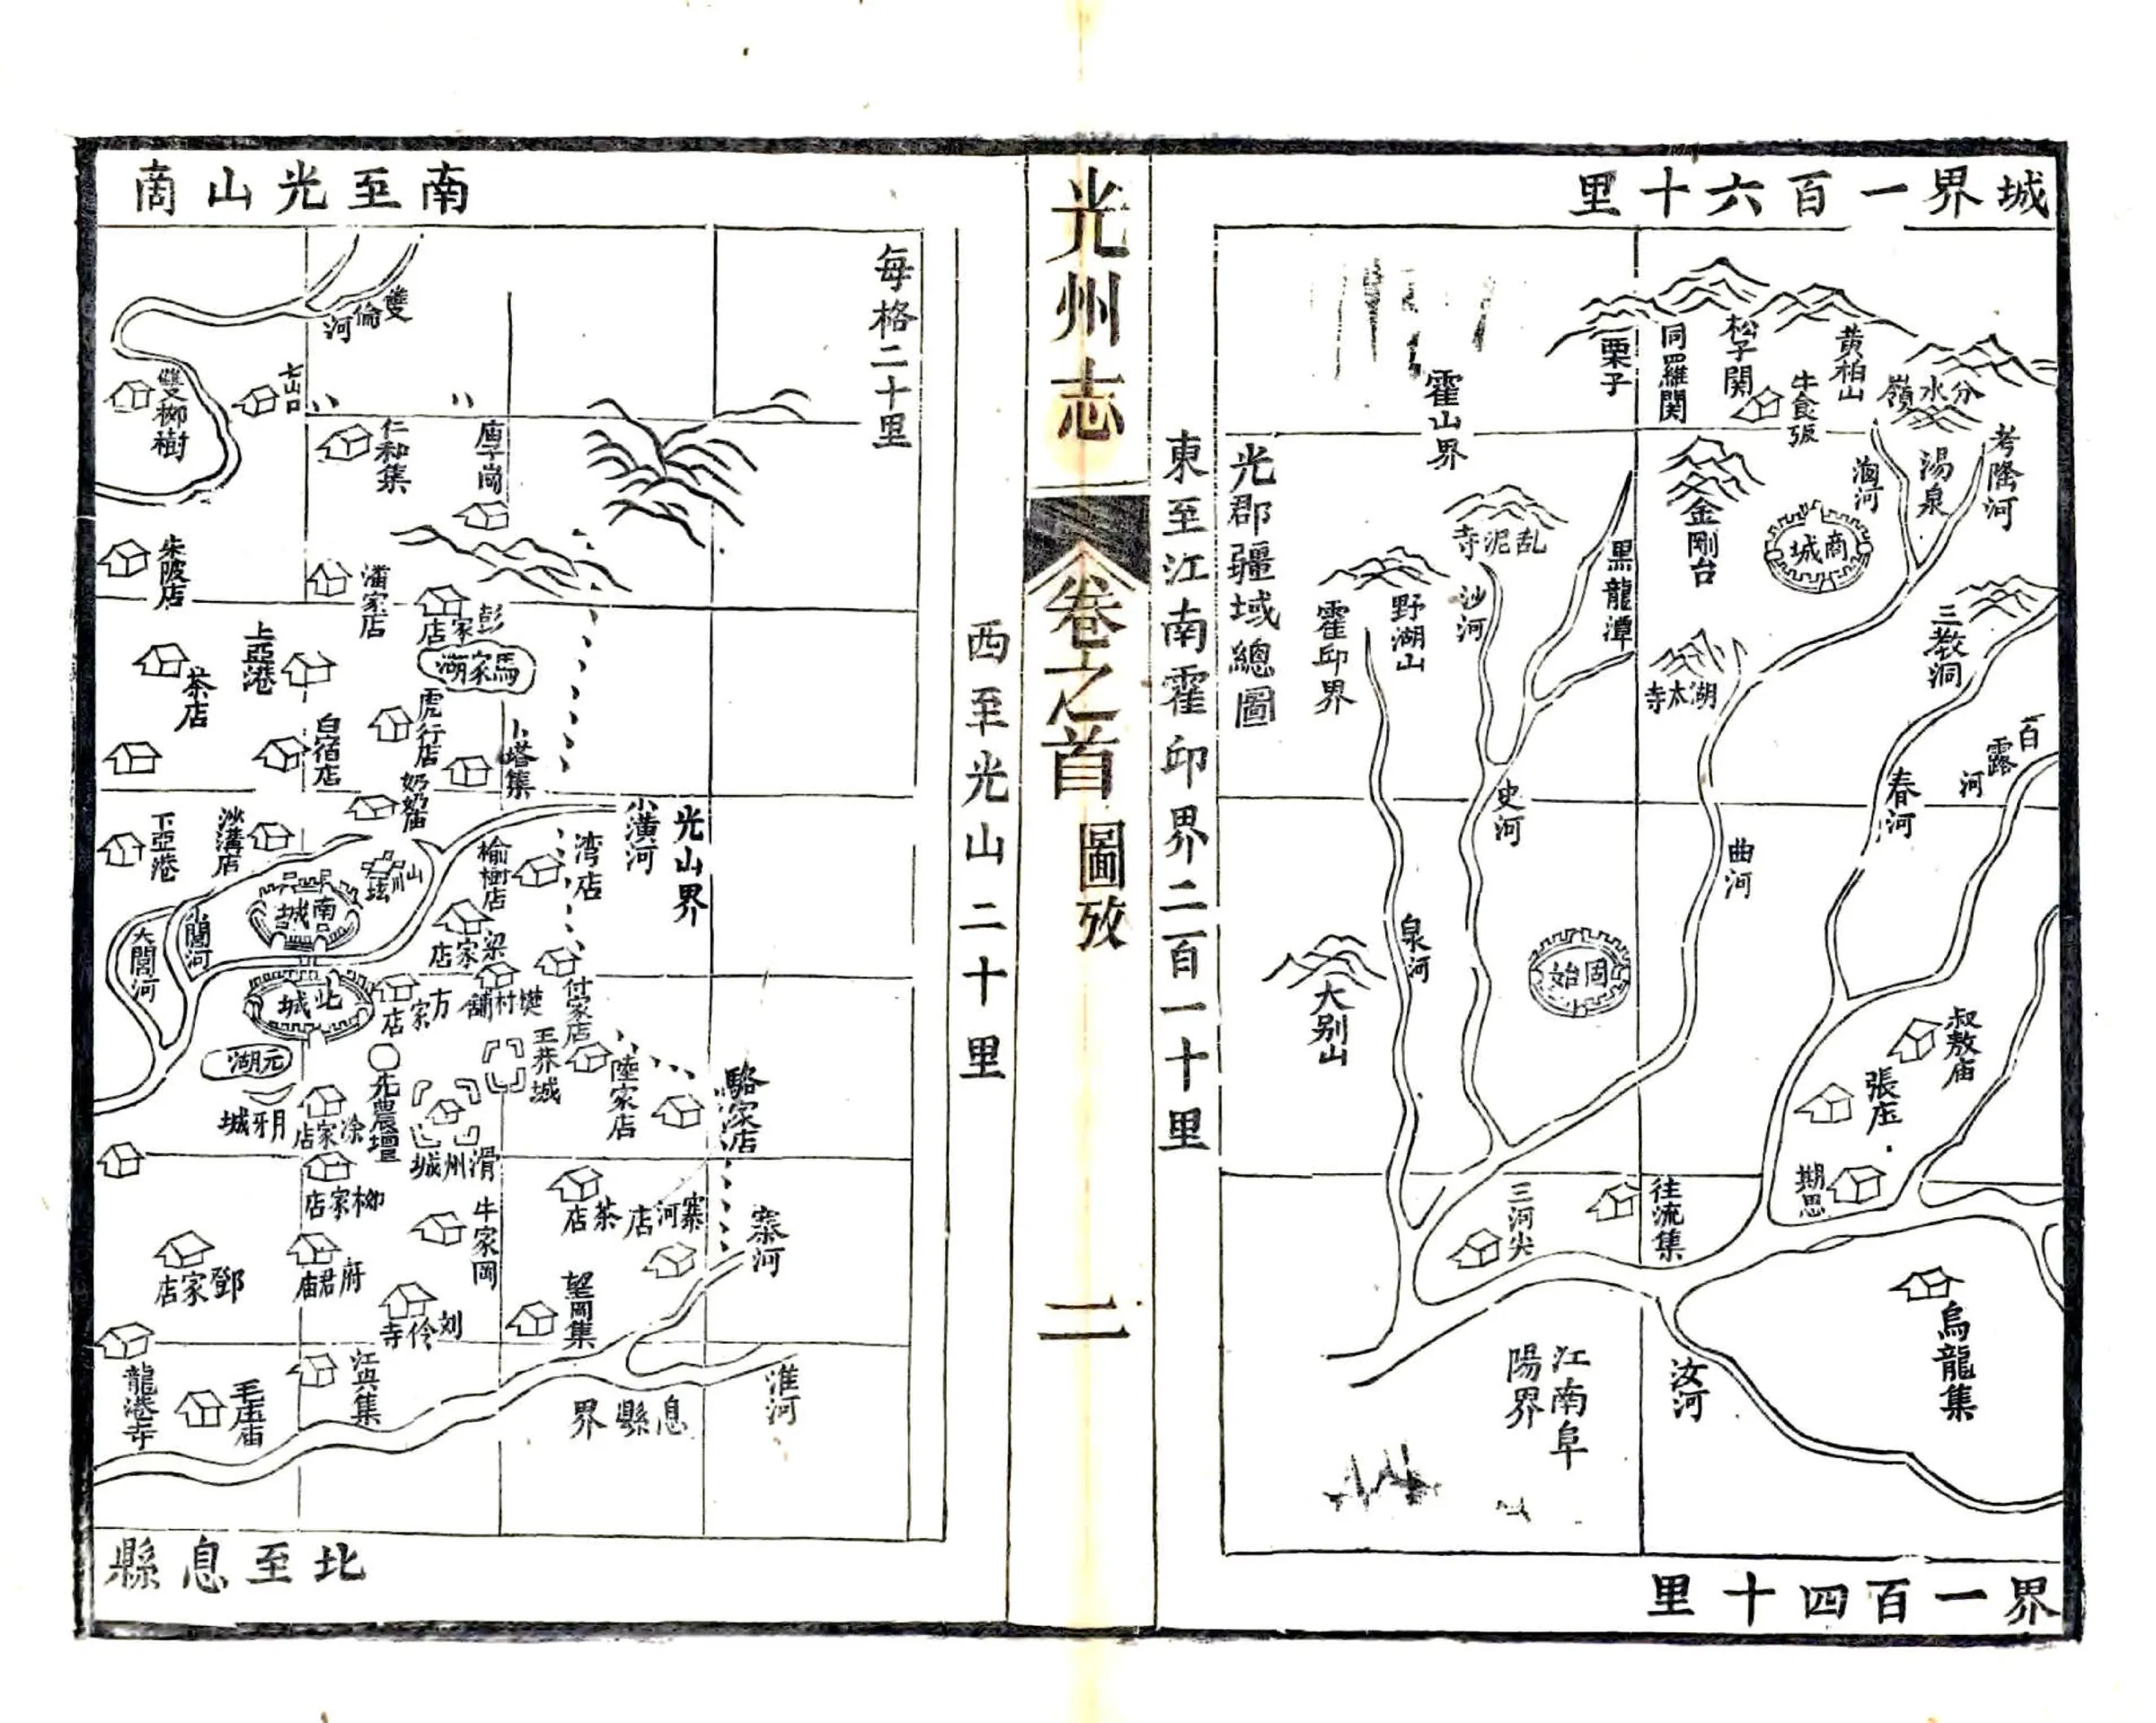 城界一百六十里
霍山界
栗子
同羅關
松子關
黃柏山
牛食張
分水嶺
光郡疆域總圖
乱泥寺
黒龍潭
金剛台
商城
湯泉
考隆河
霍邱界
野湖山
沙河
湖太寺
三教洞
百露河
史河
曲河
春河
泉河
大别山
固始
叔敖庙
張庄
期思
三河尖
往流集
烏龍集
江南阜
陽界
汝河
界一百四十里
東至江南霍邱界二百一十里
光州志
卷之首
圖攷
二
西至光山二十里
南至光山商
每格二十里
雙倫河
雙柳樹
七山口
仁和集
朱陂店
潘家店
彭家店
馬家湖
上亞港
茶店
白宿店
虎行店
卜塔集
奶奶庙
下亞港
沙溝店
山川坛
榆樹店
湾店
小潢河
光山界
南城
小閭河
大閭河
梁家店
北城
方家店
樊村舖
付家店
元湖
先農壇
王莽城
陸家店
駱家店
月牙城
涂家店
滑州城
柳家店
牛家岡
茶店
寨河店
寨河
鄧家店
府君庙
刘伶寺
望岡集
龍港寺
毛庄庙
江興集
息縣界
淮河
北至息縣